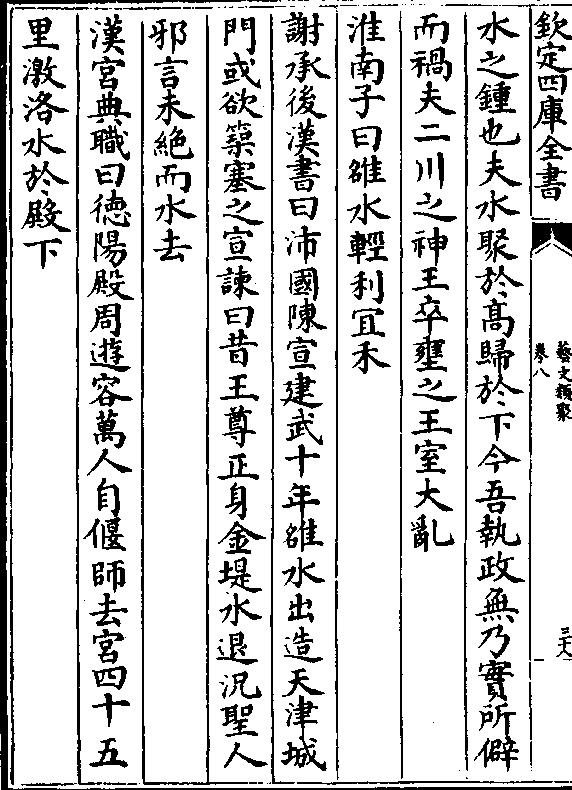 欽定四庫全書
藝文類聚
卷八
水之鍾也夫水聚於髙歸於下今吾執政無乃實所僻
而禍夫二川之神王卒壅之王室大亂
淮南子曰雒水輕利宜禾
謝承後漢書曰沛國陳宣建武十年雒水出造天津城
門或欲築塞之宣諫曰昔王尊正身金堤水退況聖人
邪言未絶而水去
漢宮典職曰徳陽殿周遊容萬人自偃師去宮四十五
里激洛水於殿下